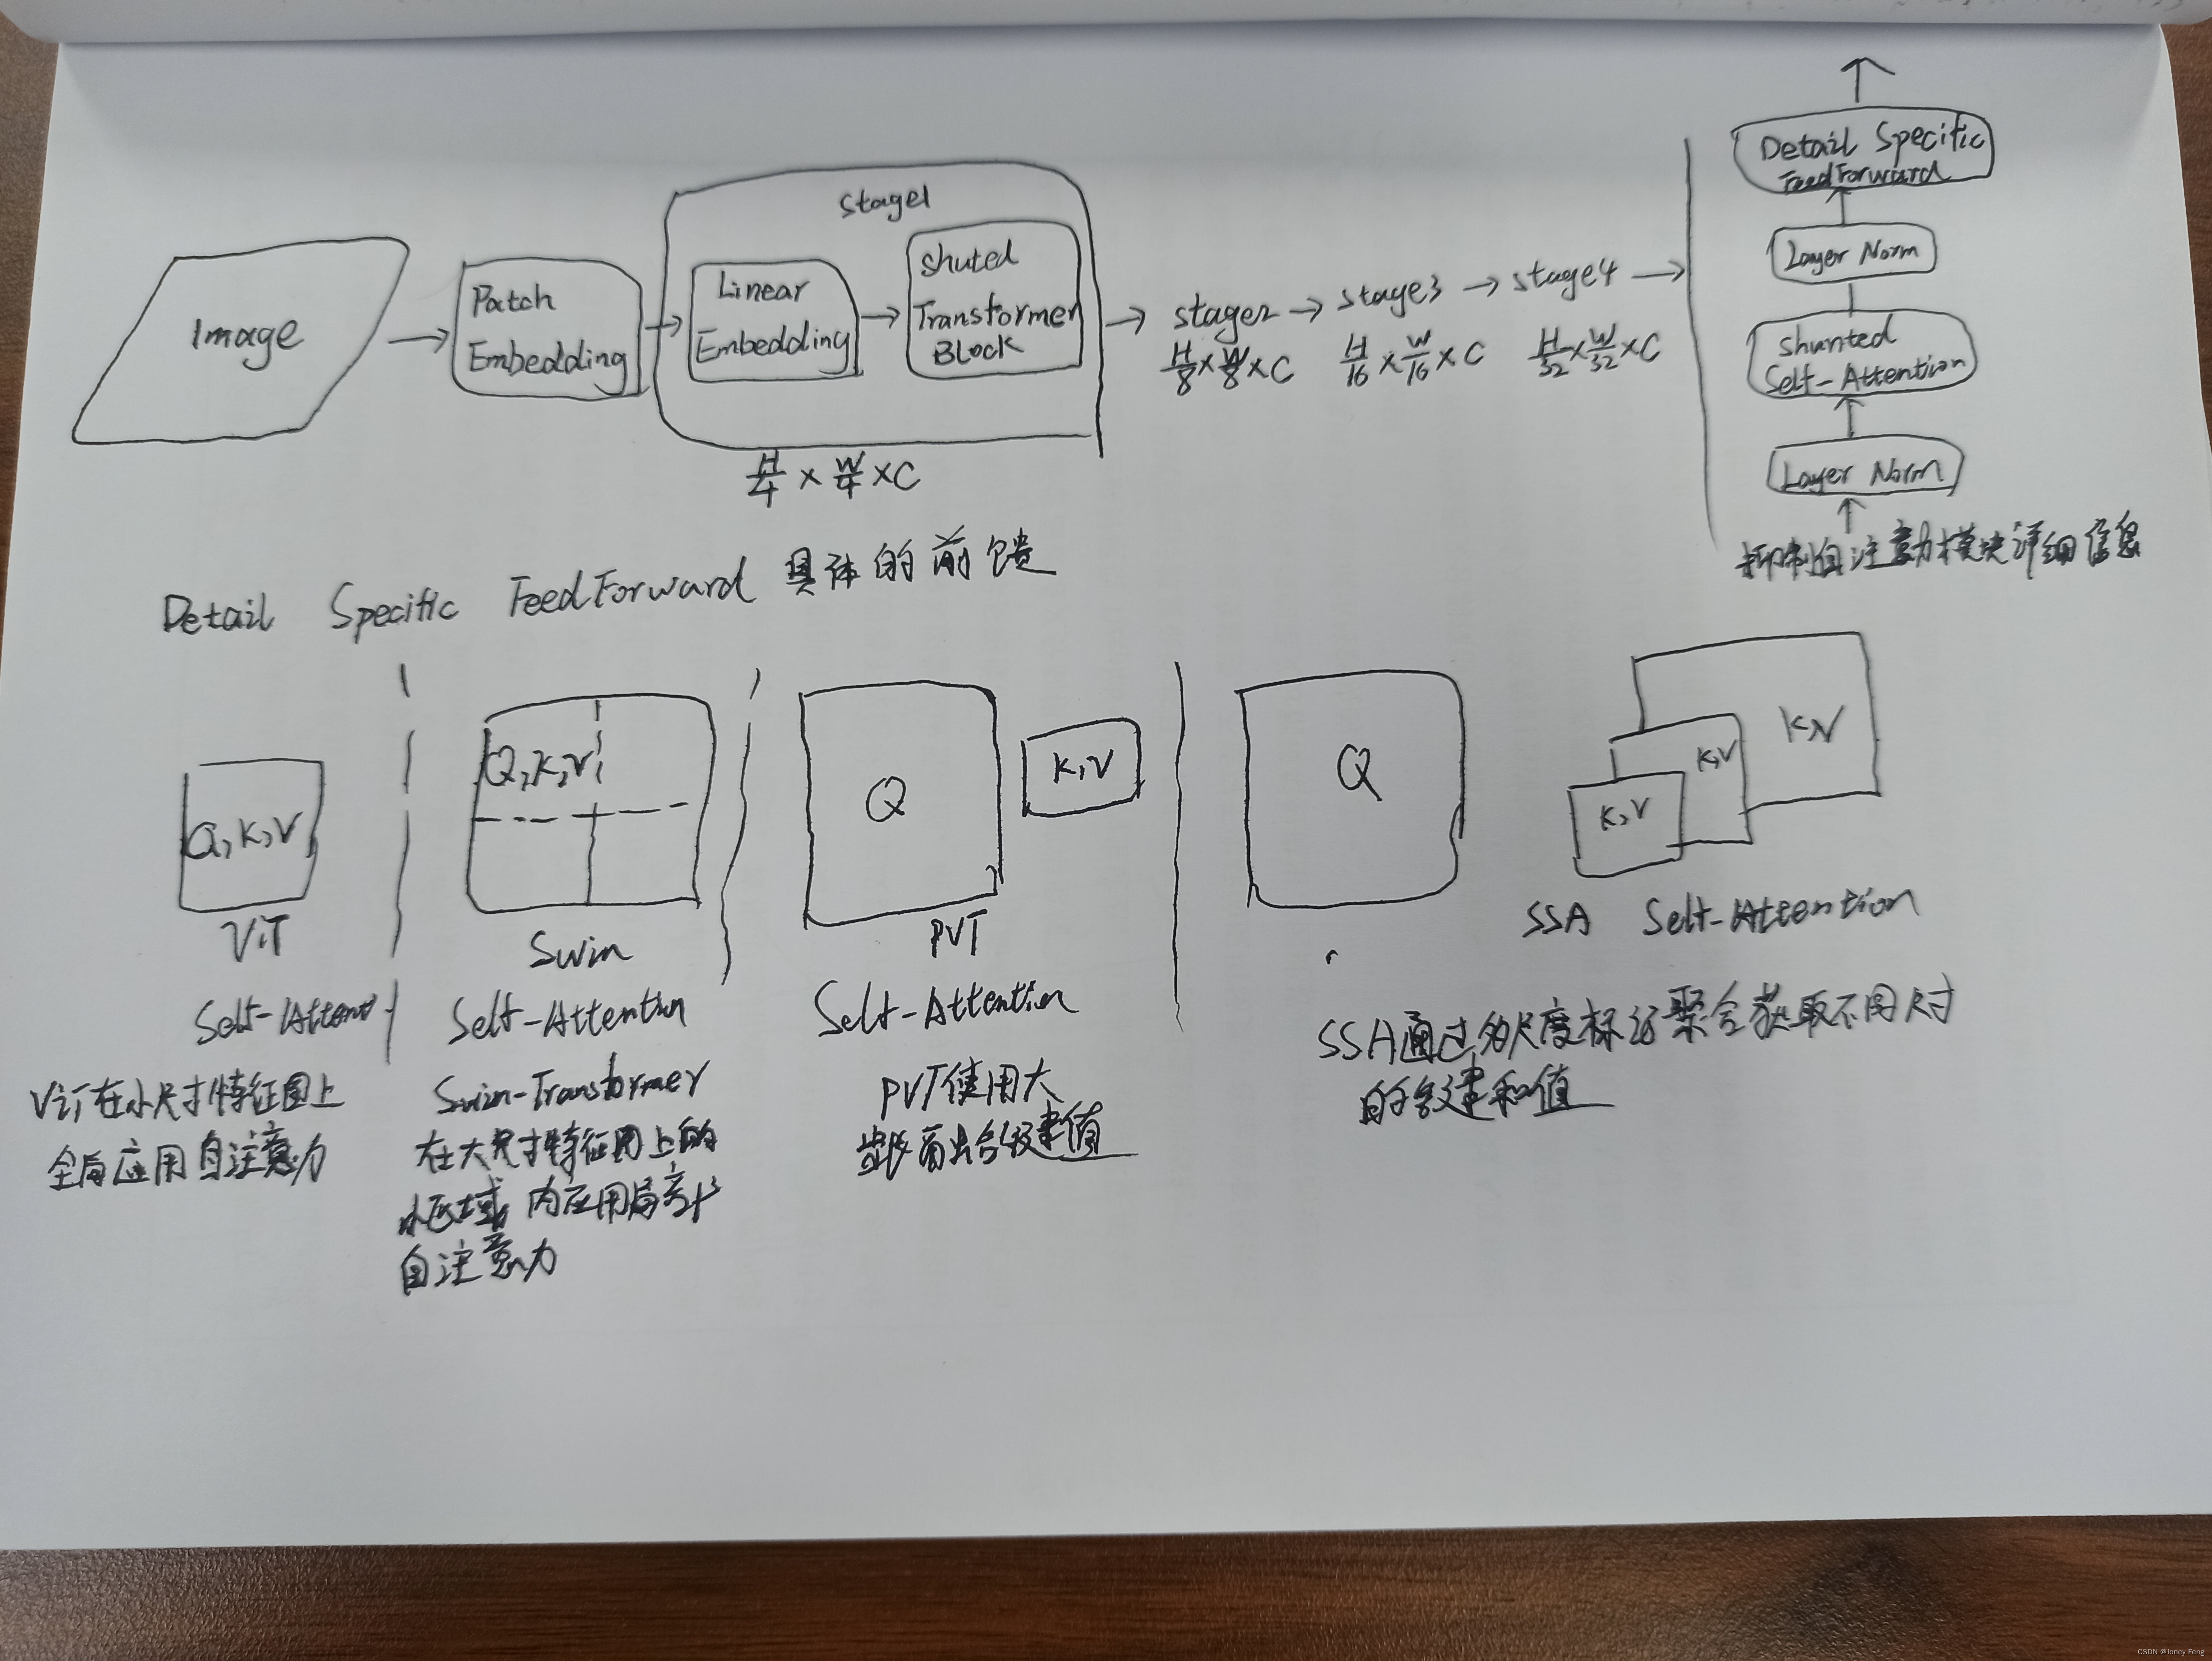 Image
Patch
Embedding
Stage1
Linear
Embedding
Shuted
Transformer
Block
H/4 × W/4 × C
stage2
H/8 × W/8 × C
stage3
H/16 × W/16 × C
stage4
H/32 × W/32 × C
Detail Specific
FeedForward
Layer Norm
Shunted
Self-Attention
Layer Norm
抑制自注意力模块详细信息
Detail Specific FeedForward 具体的前馈
Q,K,V
ViT
Self-Attent
ViT在小尺寸特征图上
全局应用自注意力
Q,K,V
Swin
Self-Attention
Swin-Transformer
在大尺寸特征图上的
小区域 内应用局部
自注意力
Q
K,V
PVT
Self-Attention
PVT使用大
键值
Q
K,V
K,V
K,V
SSA Self-Attention
SSA通过多尺度标记聚合获取不同尺寸
的键和值
CSDN @Joney Feng